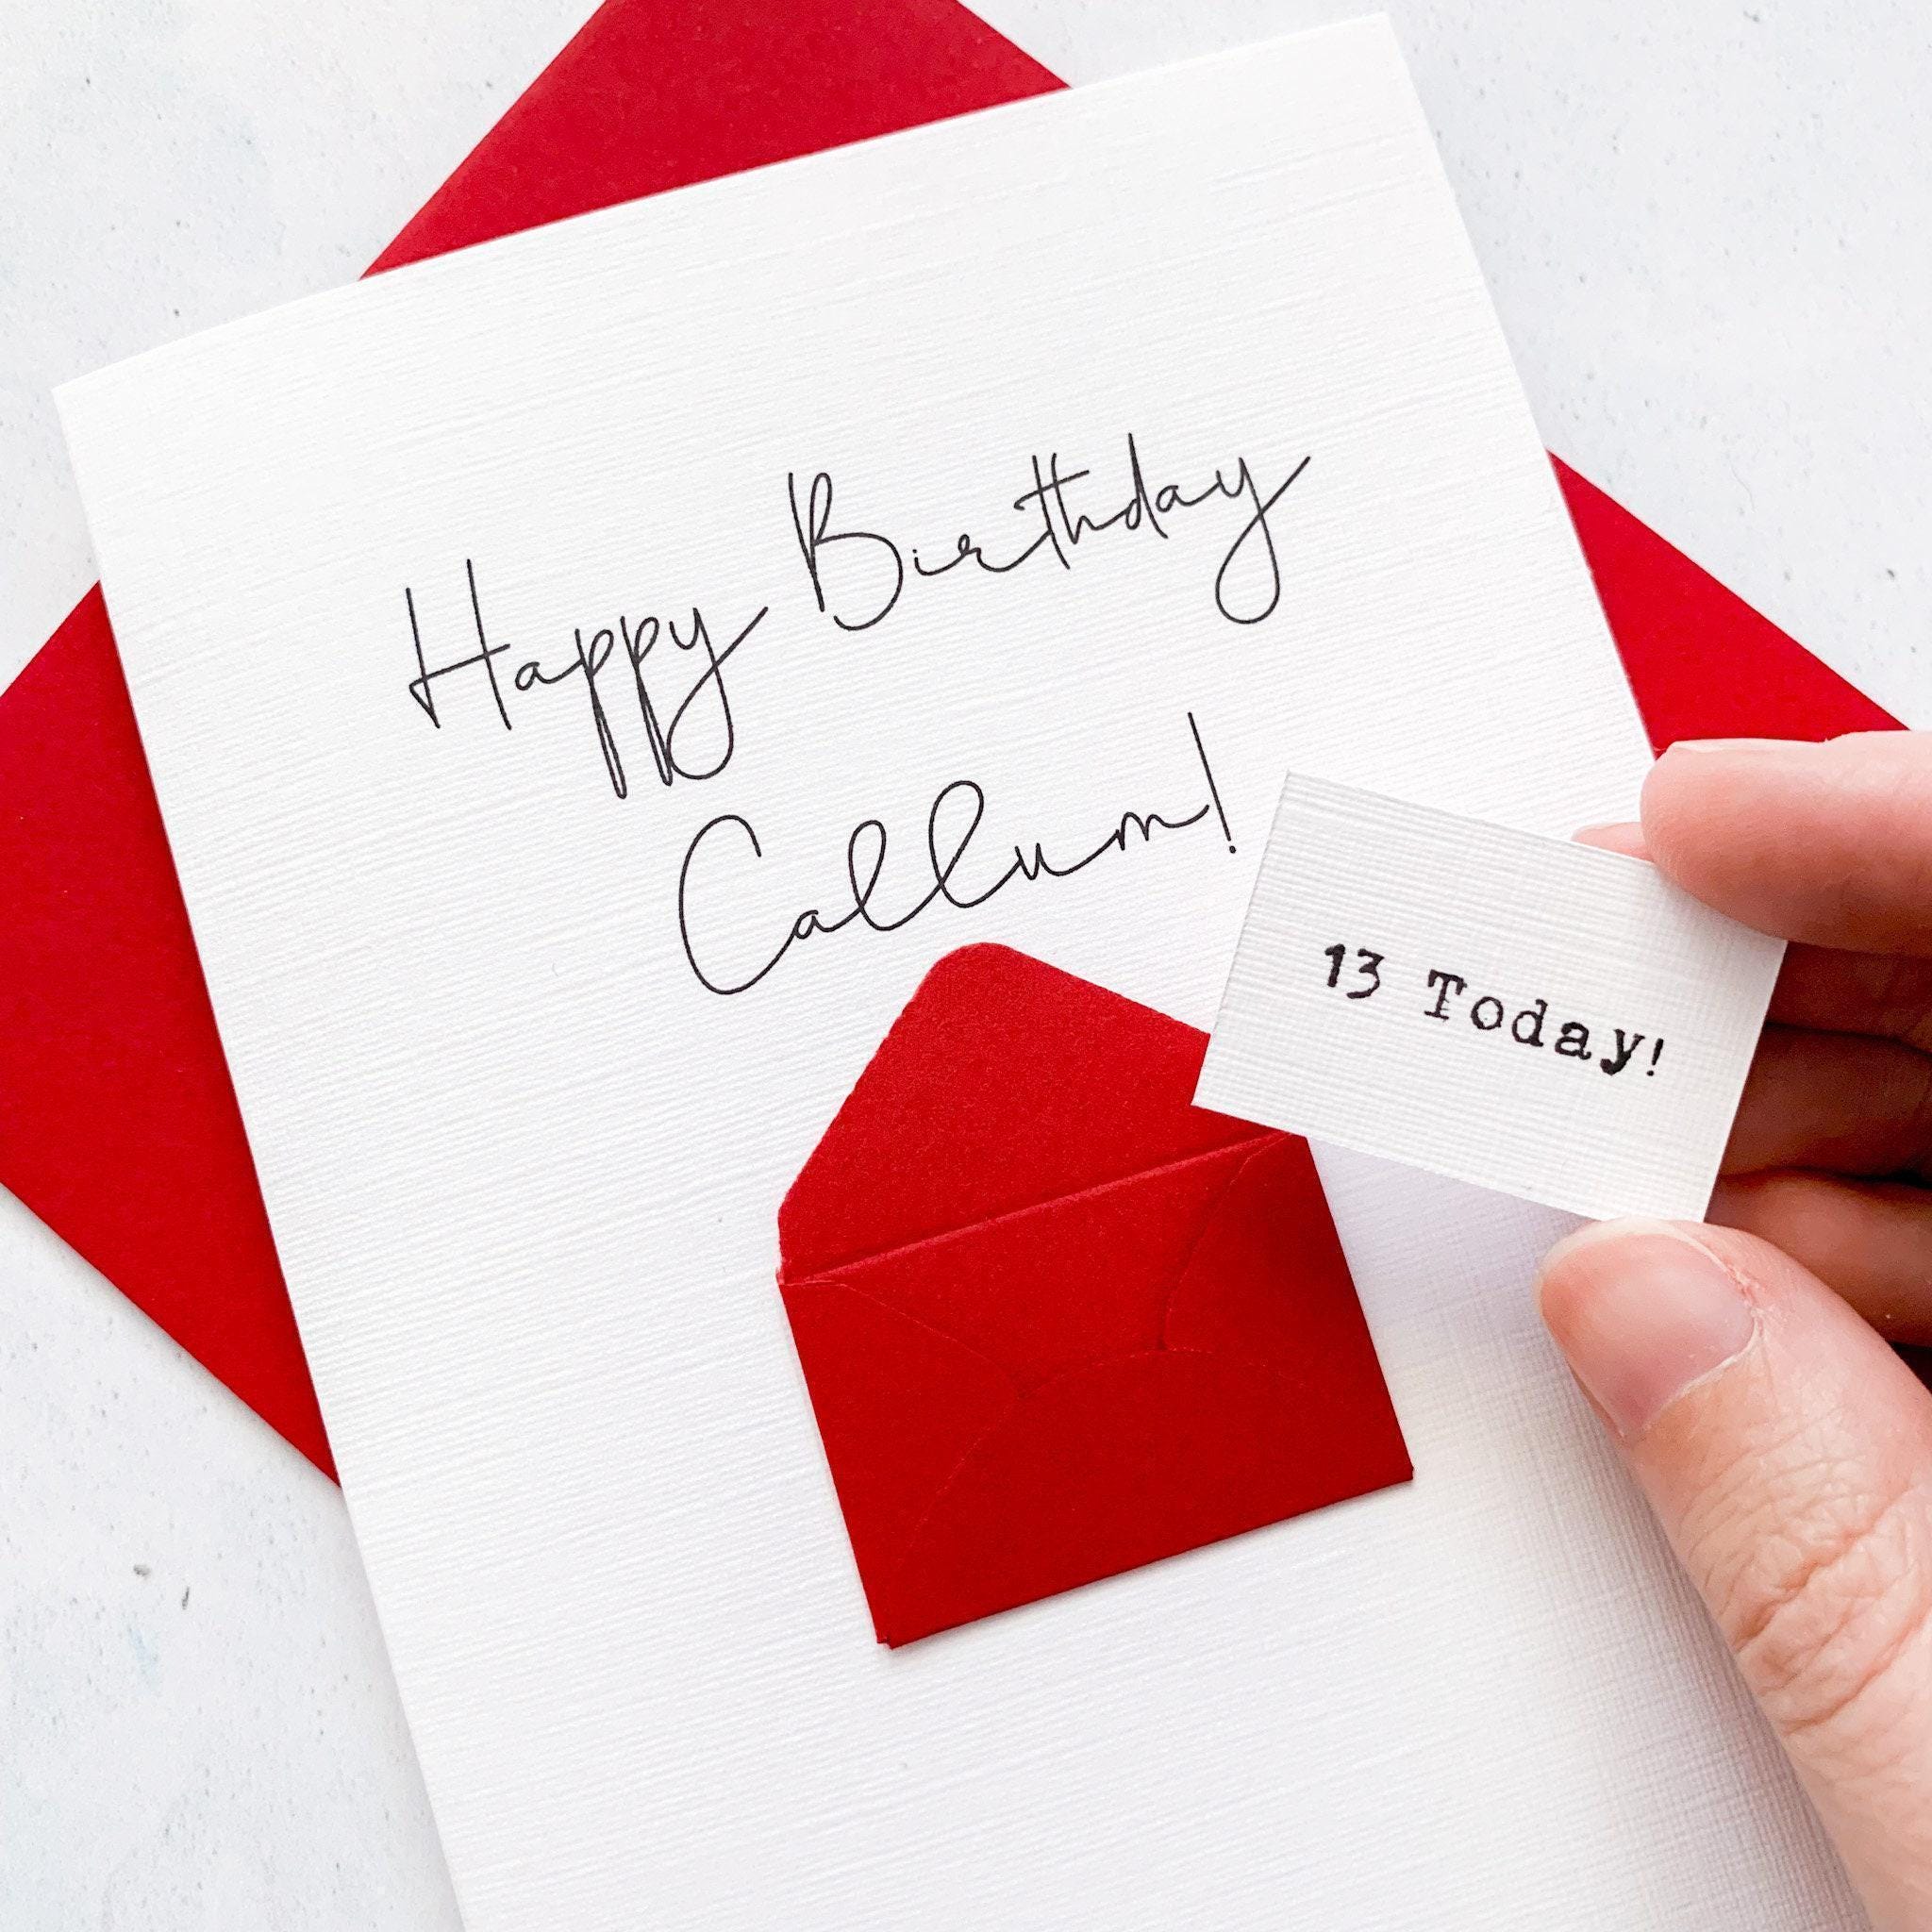 Happy Birthday
Callum!
13 Today!